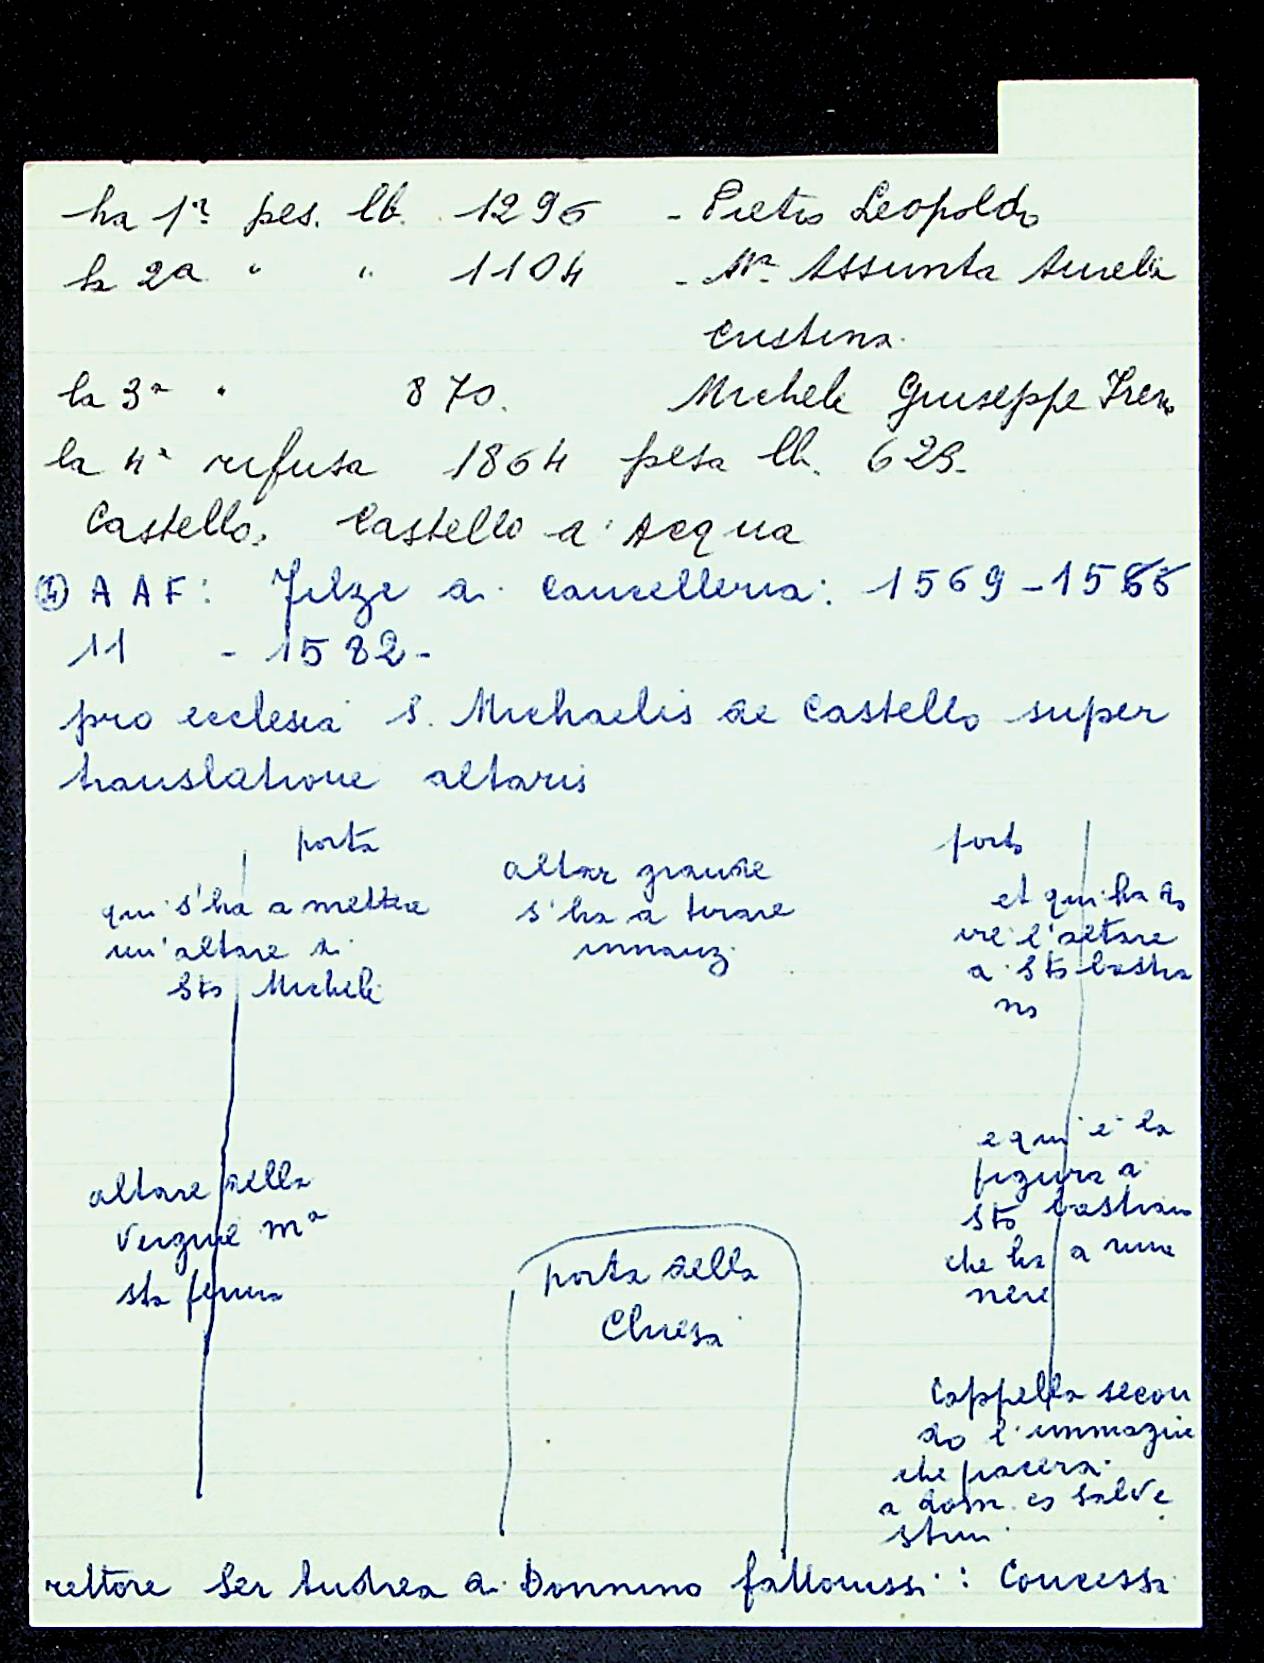 la 1ª pes. lb. 1296 - Pietro Leopoldo
la 2a " " 1104 - Mª Assunta Aurelia
Cristina.
la 3ª " 870. Michele Giuseppe Iren
la 4ª rifusa 1864 pesa lb. 623.
Castello. Castello d'Acqua
AAF: Filze di Cancelleria: 1569-1586
11 - 1582-
pro ecclesia S. Michaelis de Castello super
translatione altaris
porta
altar grande
s'ha a tirare
innanzi
porta
qui s'ha a mettere
un'altare di
Sto Michele
et qui ha da
ire l'altare
di Sto bastia
no
altare della
Vergine mª
sta ferma
e qui è la
figura di
Sto bastiano
che ha a rima
nere
porta della
Chiesa
Cappella secon
do l'immagine
che piacerà
a dom. co Salve
strini
rettore Ser Andrea di Donnino : Concessa